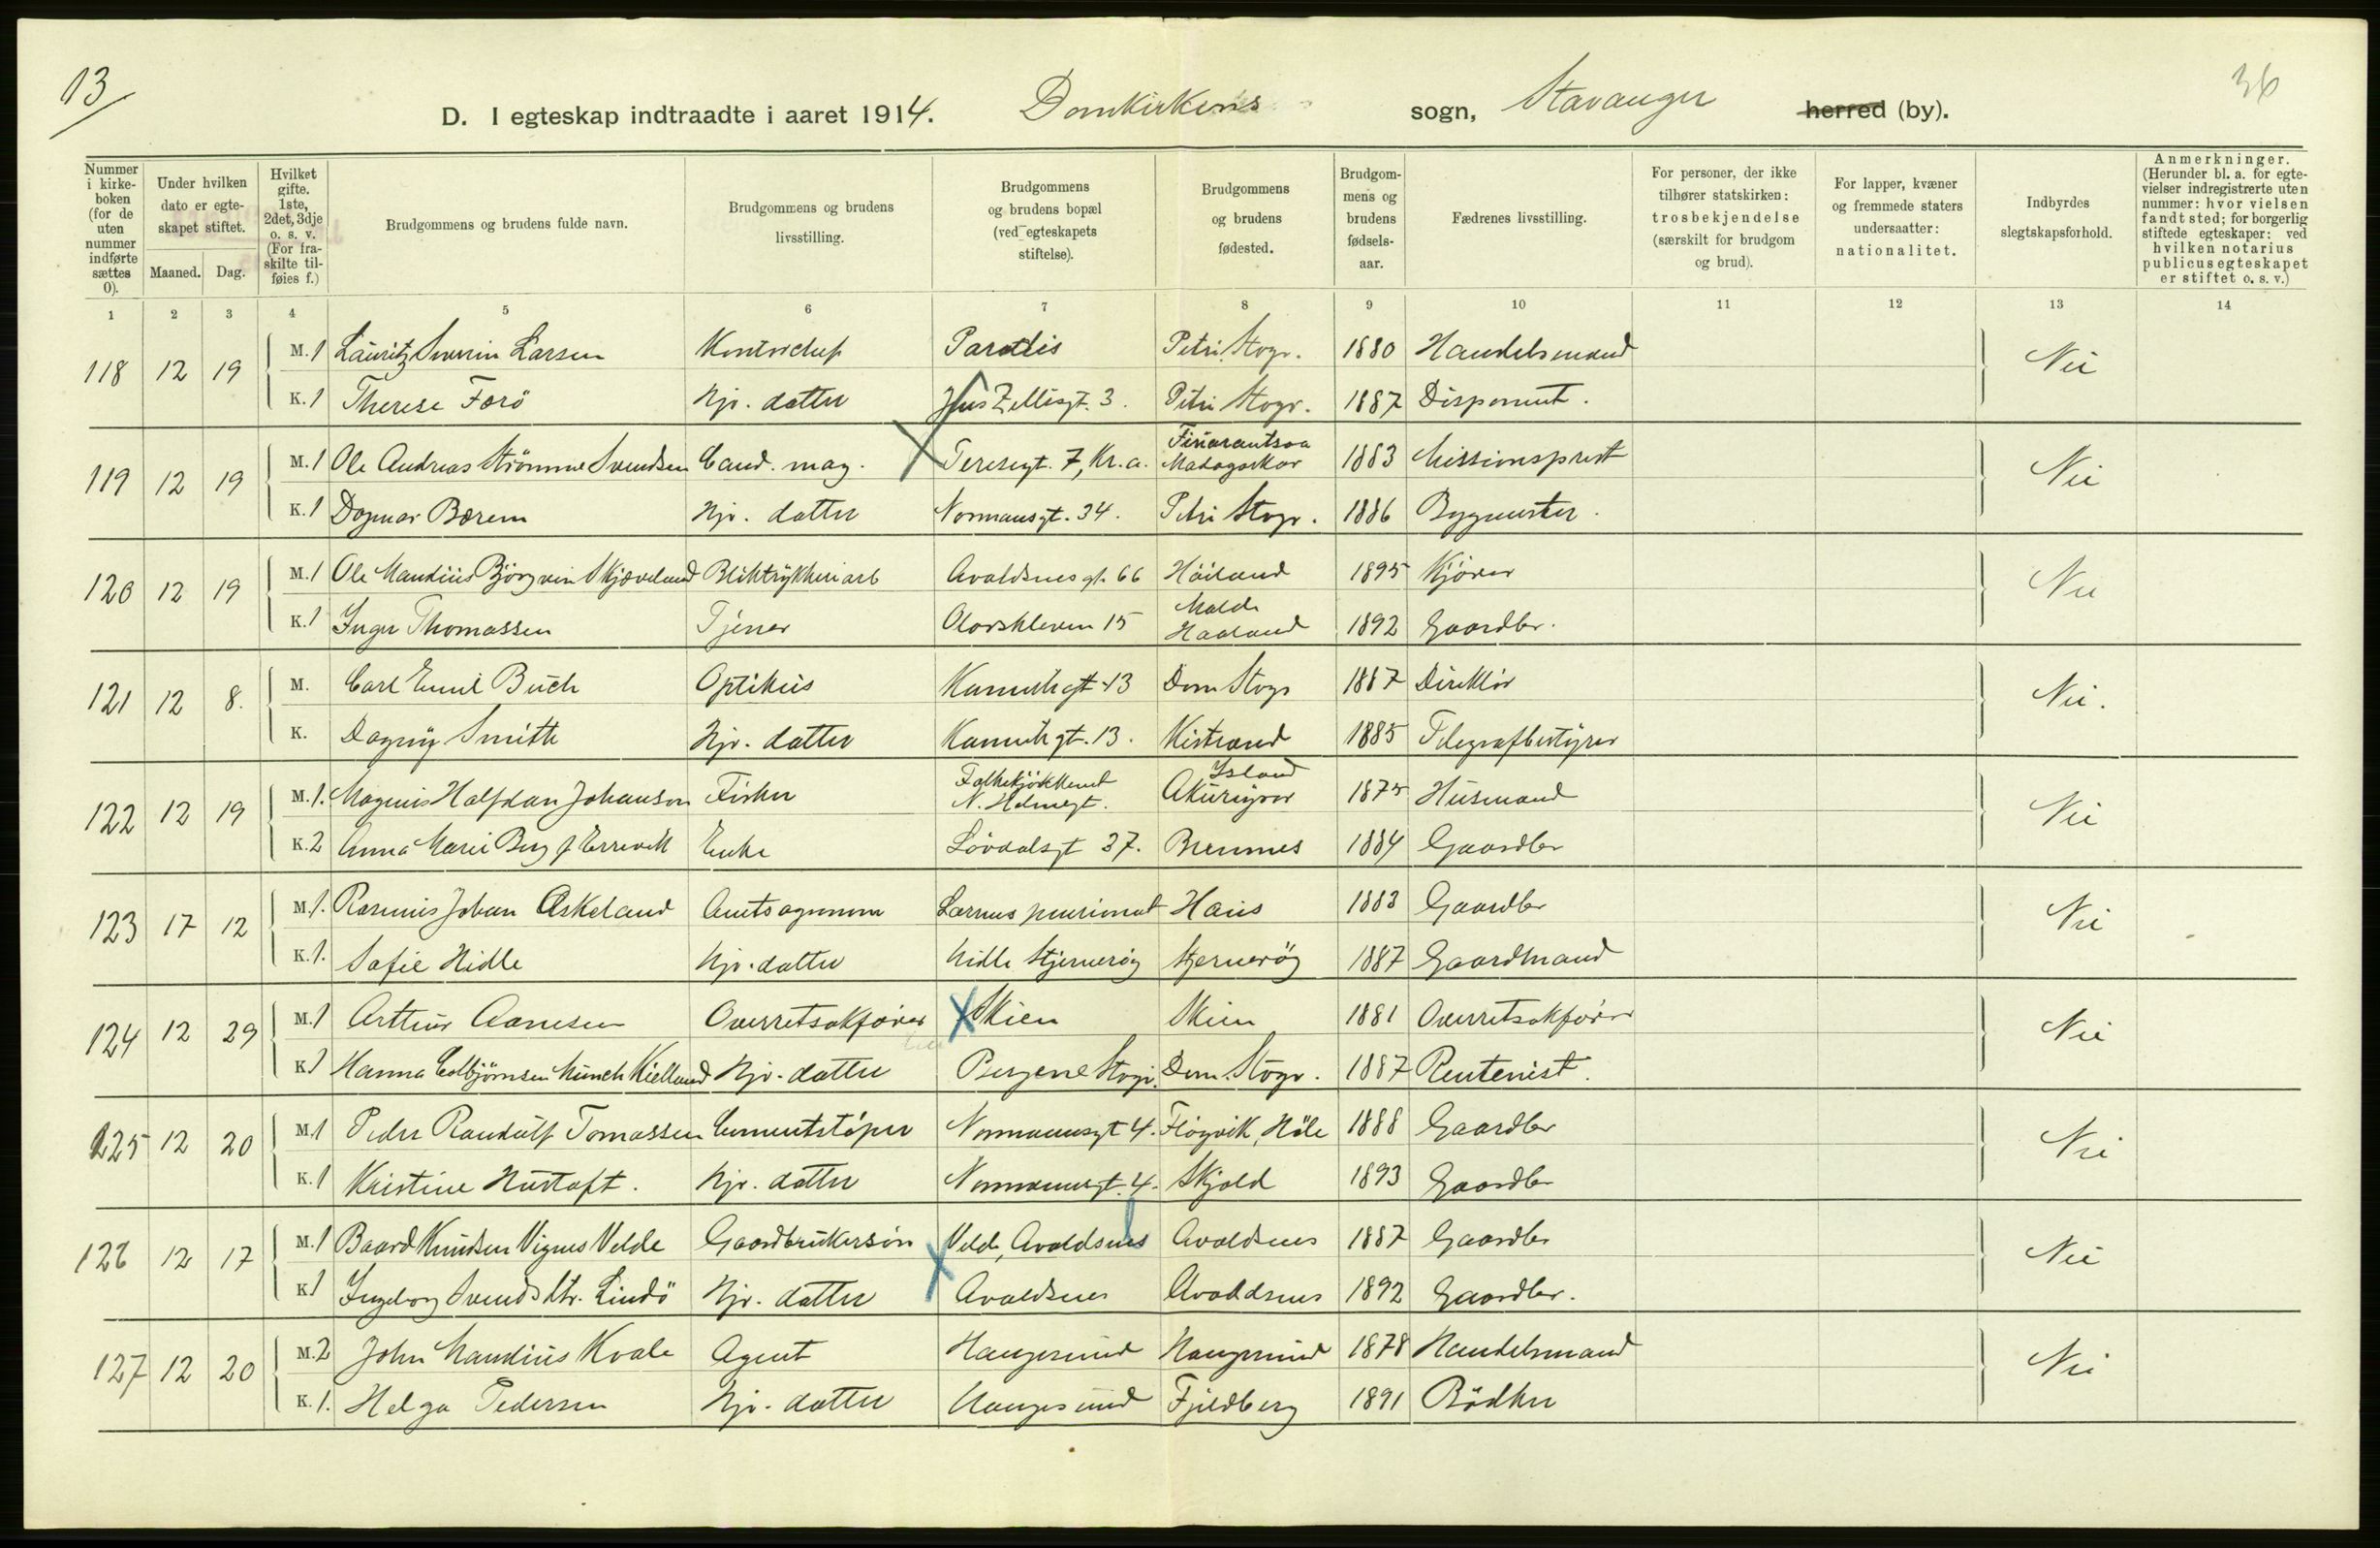 13
36
D. I egteskap indtraadte i aaret 1914. Domkirkens sogn, Stavanger herred (by).
Nummer i kirke-boken (for de uten nummer indførte sættes 0).
Under hvilken dato er egte-skapet stiftet.
Maaned. Dag.
Hvilket gifte. 1ste, 2det, 3dje o. s. v. (For fra-skilte til-føies f.)
Brudgommens og brudens fulde navn.
Brudgommens og brudens livsstilling.
Brudgommens og brudens bopæl (ved egteskapets stiftelse).
Brudgommens og brudens fødested.
Brudgom-mens og brudens fødsels-aar.
Fædrenes livsstilling.
For personer, der ikke tilhører statskirken: trosbekjendelse (særskilt for brudgom og brud).
For lapper, kvæner og fremmede staters undersaatter: nationalitet.
Indbyrdes slegtskapsforhold.
Anmerkninger. (Herunder bl. a. for egte-vielser indregistrerte uten nummer: hvor vielsen fandt sted; for borgerlig stiftede egteskaper: ved hvilken notarius publicus egteskapet er stiftet o. s. v.)
1 2 3 4 5 6 7 8 9 10 11 12 13 14
118 12 19 M. 1 Lauritz Severin Larsen Kontorchef Paradis Petri Stvgr. 1880 Handelsmand Nei
K. 1 Therese Forö Hjv. datter Jens Zetlitzgt. 3. Petri Stvgr. 1887 Disponent.
119 12 19 M. 1 Ole Andreas Strömme Svendsen Cand. mag. Teresegt. 7, Kr.a. Fianarantsoa Madagaskar 1883 Missionsprest Nei
K. 1 Dagmar Børem Hjv. datter Normansgt. 34. Petri Stvgr. 1886 Bygmester.
120 12 19 M. 1 Ole Mandius Bjørgvin Skjæveland Bliktrykkeriarb Avaldsnesgt. 66 Höiland 1895 Kjörer Nei
K. 1 Inger Thomassen Tjener Olavskleven 15 Malde Haaland 1892 Gaardbr.
121 12 8. M. Carl Emil Buch Optikus Kannikgt 13 Dom Stvgr 1887 Direktör Nei.
K. Dagny Smith Hjv. datter Kannikgt. 13. Kistrand 1885 Telegrafbestyrer
122 12 19 M. 1. Magnus Halfdan Johanson Fisker Folkekjökkenet N. Holmegt. Island Akureyrar 1875 Husmand Nei
K. 2 Anna Marie Berg f. Errevik Enke Lövdalsgt 37. Bremnes 1884 Gaardbr
123 17 12 M. 1. Rasmus Johan Askeland Amtsagronom Larsens pensionat Haus 1883 Gaardbr Nei
K. 1. Sofie Hidle Hjv. datter Hidle Stjerneröy Stjerneröy 1887 Gaardmand
124 12 29 M. 1 Arthur Aanesen Overretsakförer Skien Skien 1881 Overretsakförer Nei
K. 1 Hanna Colbjörnsen Munch Kielland Hjv. datter Bergene Stvgr. Dom. Stvgr. 1887 Rentenist.
125 12 20 M. 1 Peder Randulf Tomassen Cementstöper Normannsgt 4. Flöyvik, Høle 1888 Gaardbr Nei
K. 1 Kristine Hustoft. Hjv. datter Normannsgt. 4. Skjold 1893 Gaardbr
126 12 17 M. 1 Baard Knudsen Vignes Velde Gaardbrukersön Velde, Avaldsnes Avaldsnes 1887 Gaardbr Nei
K. 1 Ingeborg Svendsdtr. Lindö Hjv. datter Avaldsnes Avaldsnes 1892 Gaardbr.
127 12 20 M. 2 John Mandius Kvale Agent Haugesund Haugesund 1878 Handelsmand Nei
K. 1. Helga Pedersen Hjv. datter Haugesund Fjeldberg 1891 Bödker